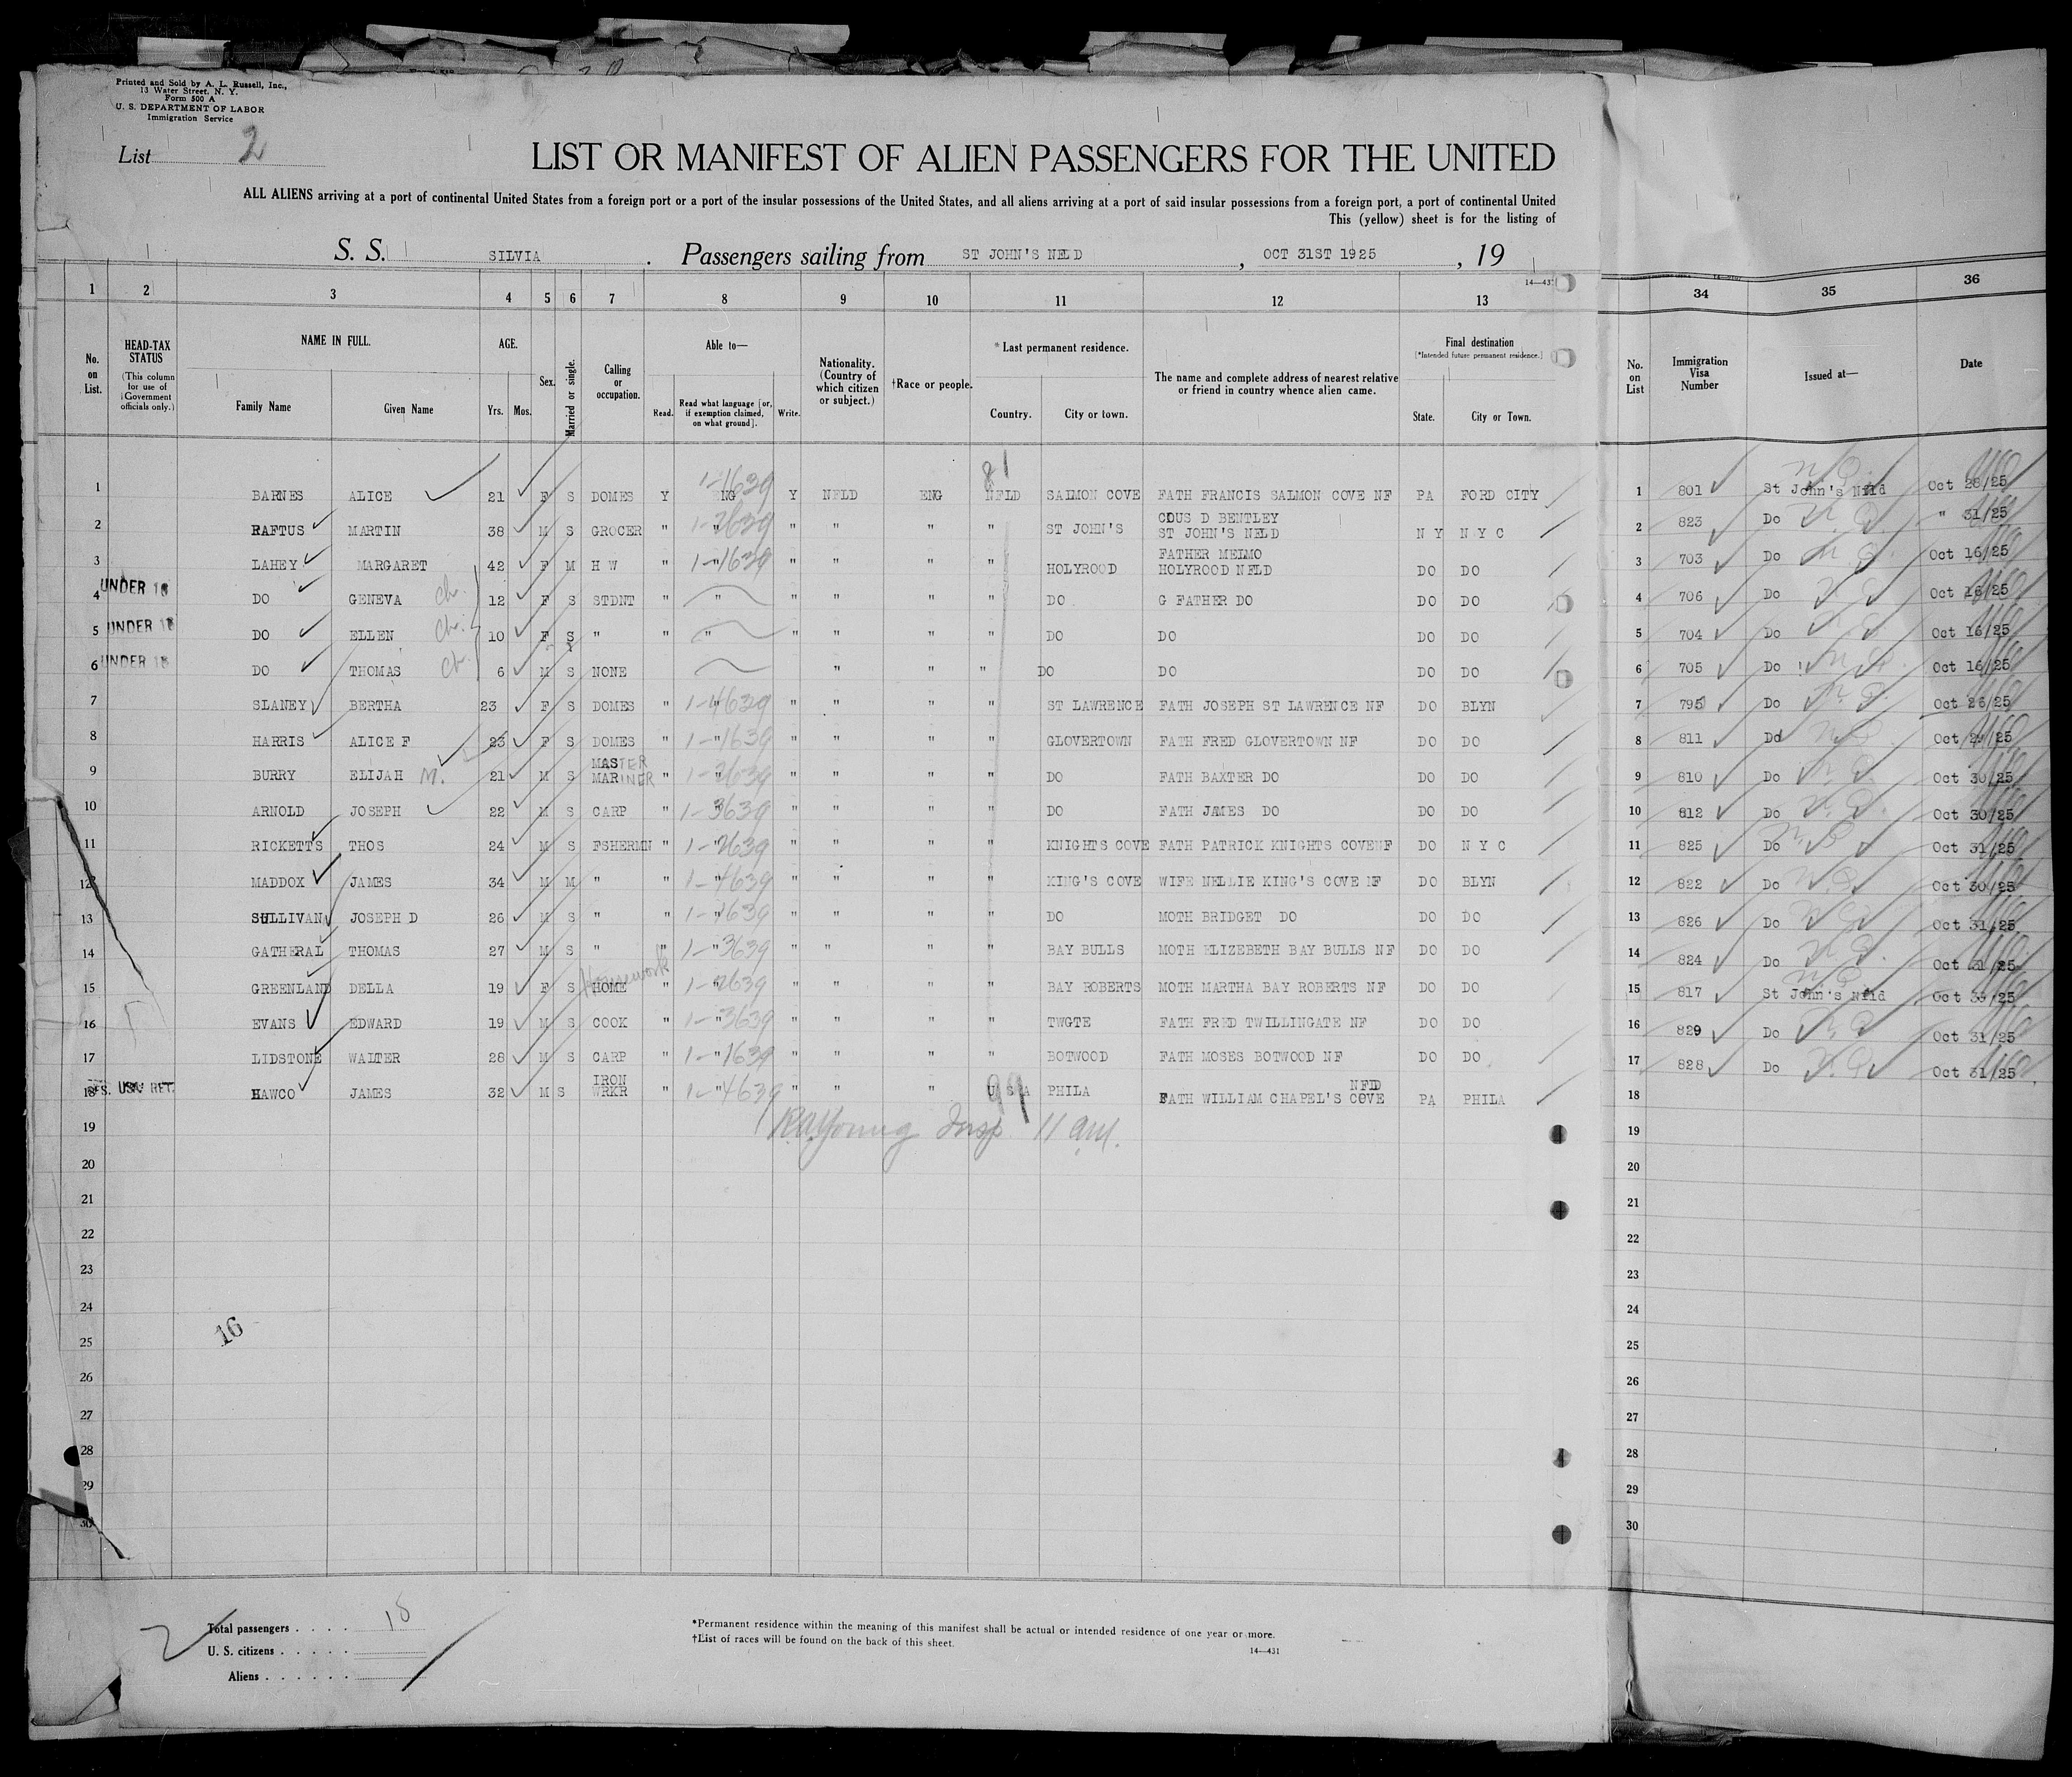 Printed and Sold by A. L. Russell, Inc.,
13 Water Street, N. Y.
Form 500 A
U. S. DEPARTMENT OF LABOR
Immigration Service
List 2
LIST OR MANIFEST OF ALIEN PASSENGERS FOR THE UNITED
ALL ALIENS arriving at a port of continental United States from a foreign port or a port of the insular possessions of the United States, and all aliens arriving at a port of said insular possessions from a foreign port, a port of continental United
This (yellow) sheet is for the listing of
S. S. SILVIA. Passengers sailing from ST JOHN'S NFLD, OCT 31ST 1925, 19
14—431
1 2 3 4 5 6 7 8 9 10 11 12 13 34 35 36
No. on List. HEAD-TAX STATUS (This column for use of Government officials only.) NAME IN FULL. Family Name Given Name AGE. Yrs. Mos. Sex. Married or single. Calling or occupation. Able to— Read. Read what language [or, if exemption claimed, on what ground]. Write. Nationality. (Country of which citizen or subject.) †Race or people. *Last permanent residence. Country. City or town. The name and complete address of nearest relative or friend in country whence alien came. Final destination [*Intended future permanent residence.] State. City or Town. No. on List Immigration Visa Number Issued at— Date
81
1 BARNES ALICE 21 F S DOMES Y ENG 1-1639 Y NFLD ENG NFLD SALMON COVE FATH FRANCIS SALMON COVE NF PA FORD CITY 1 801 St John's Nfld Oct 28/25
2 RAFTUS MARTIN 38 M S GROCER " " 1-2639 " " " " ST JOHN'S COUS D BENTLEY ST JOHN'S NFLD N Y N Y C 2 823 Do " 31/25
3 LAHEY MARGARET 42 F M H W " " 1-1639 " " " " HOLYROOD FATHER MEIMO HOLYROOD NFLD DO DO 3 703 Do Oct 16/25
4 UNDER 16 DO GENEVA ch. 12 F S STDNT " " " " " " DO G FATHER DO DO DO 4 706 Do Oct 16/25
5 UNDER 16 DO ELLEN ch. 10 F S " " " " " " " DO DO DO DO 5 704 Do Oct 16/25
6 UNDER 16 DO THOMAS ch. 6 M S NONE " " " DO DO DO DO 6 705 Do Oct 16/25
7 SLANEY BERTHA 23 F S DOMES " " 1-4639 " " " " ST LAWRENCE FATH JOSEPH ST LAWRENCE NF DO BLYN 7 795 Do Oct 26/25
8 HARRIS ALICE F 23 F S DOMES " " 1-1639 " " " " GLOVERTOWN FATH FRED GLOVERTOWN NF DO DO 8 811 Do Oct 29/25
9 BURRY ELIJAH M. 21 M S MASTER MARINER " " 1-2639 " " " " DO FATH BAXTER DO DO DO 9 810 Do Oct 30/25
10 ARNOLD JOSEPH 22 M S CARP " " 1-3639 " " " " DO FATH JAMES DO DO DO 10 812 Do Oct 30/25
11 RICKETTS THOS 24 M S FSHERMN " " 1-2639 " " " " KNIGHTS COVE FATH PATRICK KNIGHTS COVE NF DO N Y C 11 825 Do Oct 31/25
12 MADDOX JAMES 34 M M " " " 1-4639 " " " " KING'S COVE WIFE NELLIE KING'S COVE NF DO BLYN 12 822 Do Oct 30/25
13 SULLIVAN JOSEPH D 26 M S " " " 1-1639 " " " " DO MOTH BRIDGET DO DO DO 13 826 Do Oct 31/25
14 GATHERAL THOMAS 27 M S " " " 1-3639 " " " " BAY BULLS MOTH ELIZEBETH BAY BULLS NF DO DO 14 824 Do Oct 31/25
15 GREENLAND DELLA 19 F S Housework HOME " " 1-2639 " " " " BAY ROBERTS MOTH MARTHA BAY ROBERTS NF DO DO 15 817 St John's Nfld Oct 30/25
16 EVANS EDWARD 19 M S COOK " " 1-3639 " " " " TWGTE FATH FRED TWILLINGATE NF DO DO 16 829 Do Oct 31/25
17 LIDSTONE WALTER 28 M S CARP " " 1-1639 " " " " BOTWOOD FATH MOSES BOTWOOD NF DO DO 17 828 Do Oct 31/25
18 RES. USA RET. HAWCO JAMES 32 M S IRON WRKR " " 1-4639 " " " U S A 99 PHILA FATH WILLIAM CHAPEL'S COVE NFLD PA PHILA 18
19 RA Young Insp 11 am. 19
20 20
21 21
22 22
23 23
24 24
16
25 25
26 26
27 27
28 28
29 29
30 30
2
Total passengers 18
U. S. citizens
Aliens
*Permanent residence within the meaning of this manifest shall be actual or intended residence of one year or more.
†List of races will be found on the back of this sheet.
14—431